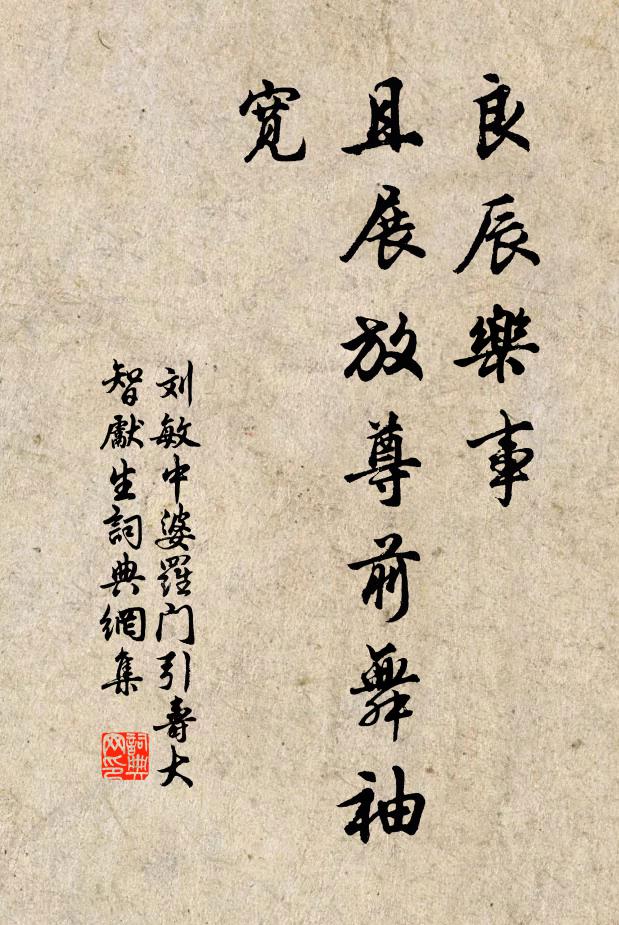 良辰樂事
且展放尊前舞袖
寬
刘敏中婆羅门引壽大
智獻生詞典網集
詞典
网印